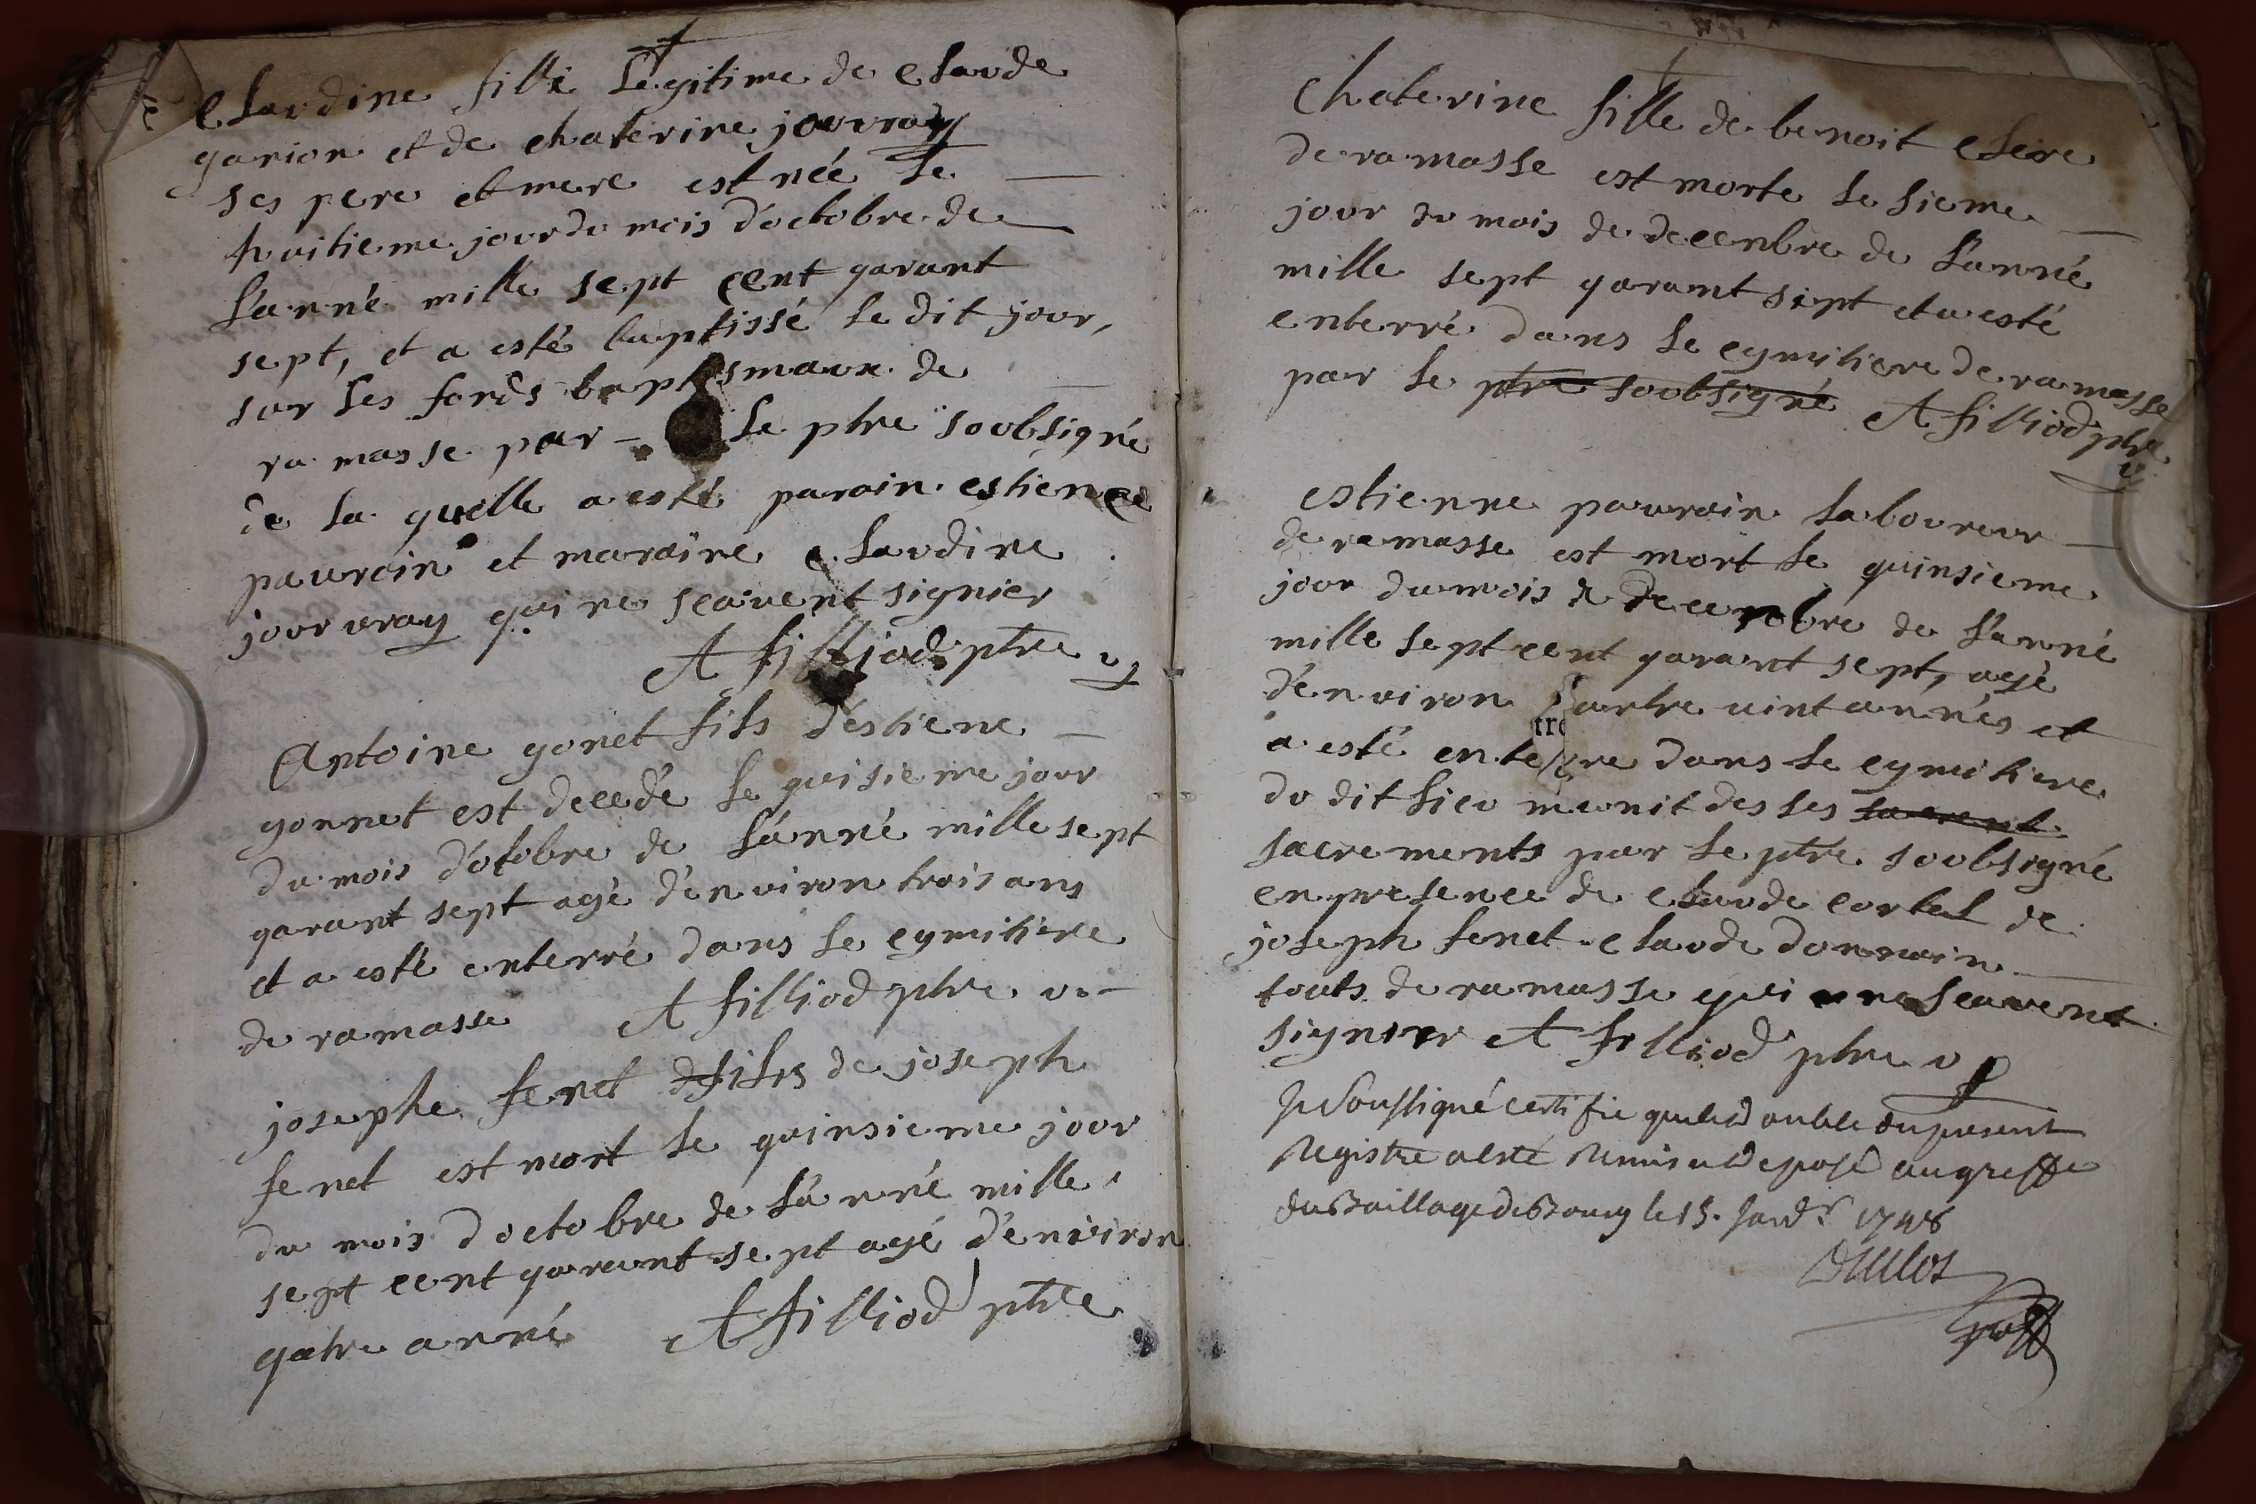 Claudine fille Legitime de Claude
garion et de chaterine jouvray
ses pere et mere est née le
huitieme jour du mois d'octobre de
L'anné mille sept cent garant
sept, et a esté baptissé le dit jour,
sur les fonds baptismaux de
ramasse par le ptre soubsigné
de la quelle a esté parain estienne
pauvrain et maraine claudine
jourvray qui ne scavent signier
A filliod ptre v
Antoine gonet fils d'estiene
gonnet est decedé le quisieme jour
du mois d'otobre de L'anné mille sept
garant sept agé d'environ trois ans
et a esté enterré dans le cymitiere
de ramasse A filliod ptre v
josephe fenet fils de joseph
fenet est mort le quinsieme jour
du mois d'octobre de L'anné mille
sept cent garant sept agé d'environ
qatre anné A filliod ptre
Chaterine fille de benoit clere
de ramasse est morte le sieme
jour du mois de decenbre de L'anné
mille sept garant sept et a esté
enterré dans le cymitiere de ramasse
par le ptre soubsigné A filliod ptre
v
estienne pauvrain laboureur
de ramasse est mort le quinsieme
jour du mois de decenbre de L'anné
mille sept cent garant sept, agé
d'environ quatre vint annés et
a esté enterre dans le cymitiere
du dit lieu munit des ses sacrent
sacrements par le ptre soubsigné
en presence de claude cortet de
joseph fenet claude donnain
touts de ramasse qui ne scavent
signier A filliod ptre v
Je Soussigné certifie que le double du present
Registre a esté Remis et deposé au greffe
du Baillage de Bourg le 15. 1748